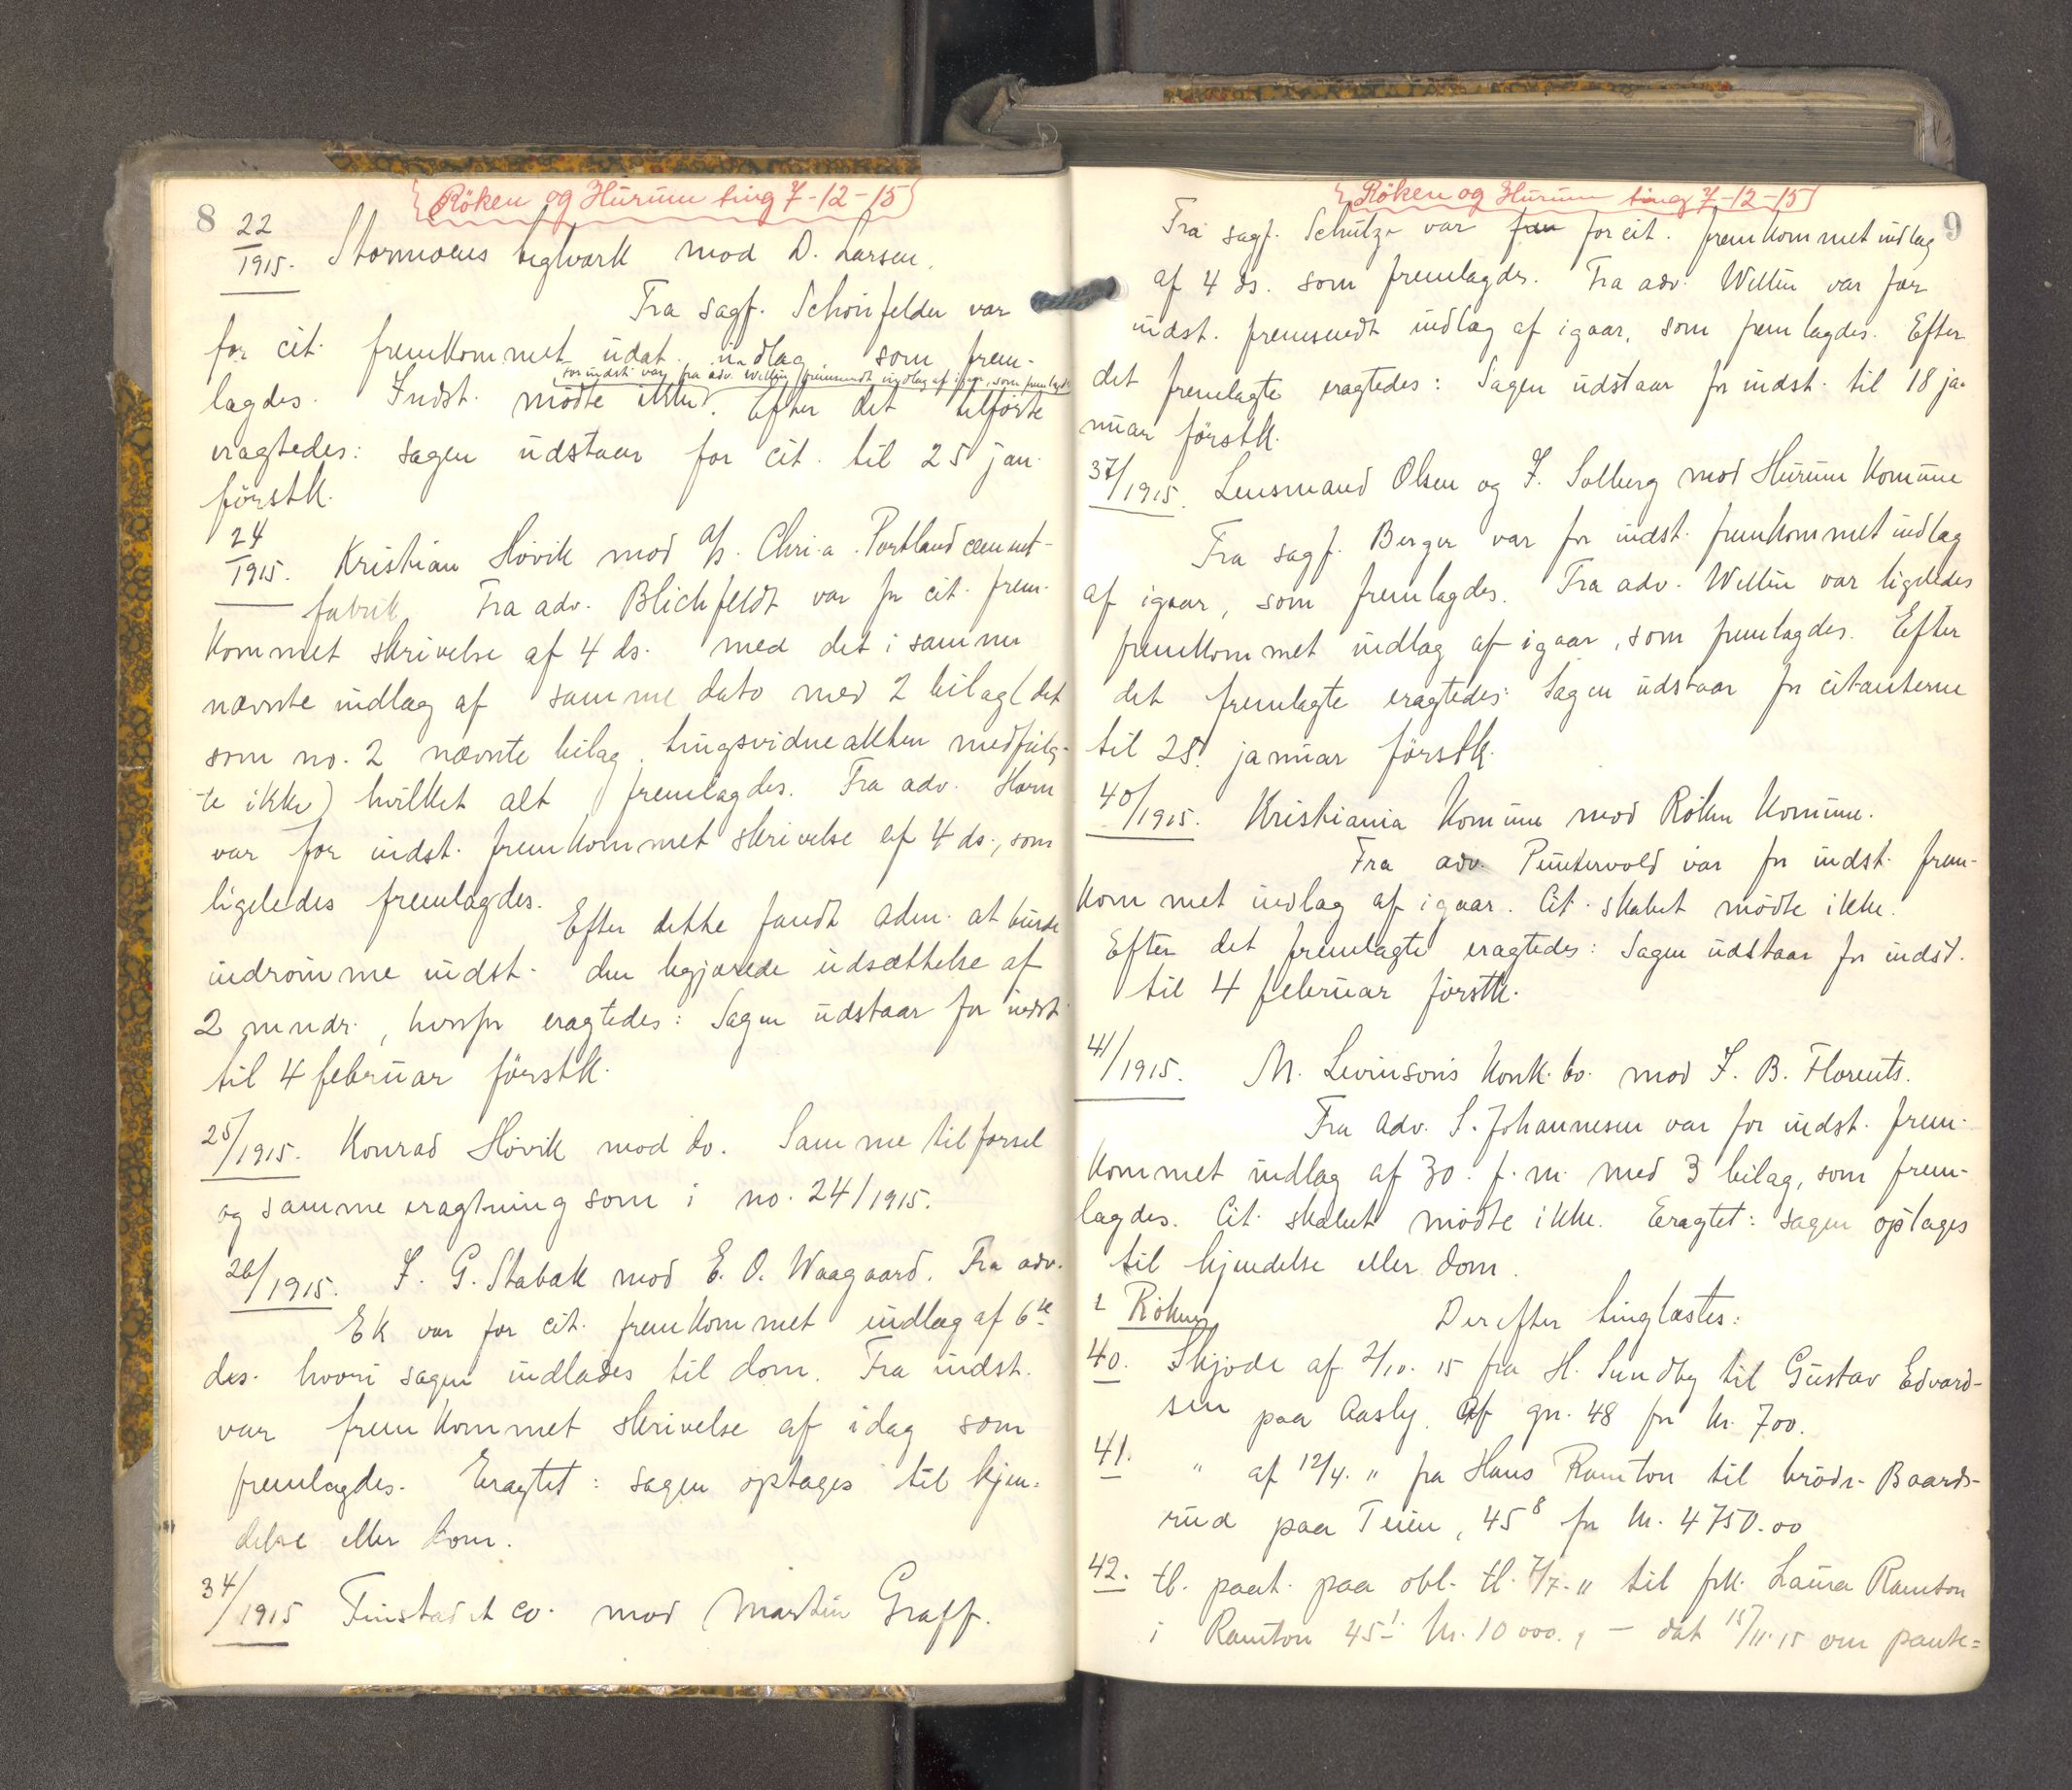 Röken og Hurum ting 7-12-15
8
22/1915. Stormoens teglværk mod O. Larsen.
Fra sagf. Schönfelder var
for cit. fremkommet udat. indlæg som frem-
for indst. var fra adv. Wellén fremsendt indlæg af igaar, som fremlagdes
lagdes. Indst. mödte ikke. Efter det tilförte
eragtedes: sagen udstaar for cit. til 25 jan.
förstk.
24/1915. Kristian Hövik mod A/S. Chri.a. Portland cement-
fabrik. Fra adv. Blichfeldt var for cit. frem-
kommet skrivelse af 4 ds. med det i samme
nævnte indlæg af samme dato med 2 bilag (det
som no. 2 nævnte bilag, tingsvidneakten medfulg-
te ikke) hvilket alt fremlagdes. Fra adv. Horn
var for indst. fremkommet skrivelse af 4 ds., som
ligeledes fremlagdes.
Efter dette fandt adm. at burde
indrömme indst. den begjærede udsættelse af
2 mndr., hvorfor eragtedes: Sagen udstaar for indst.
til 4 februar förstk.
25/1915. Konrad Hövik mod do. Samme tilförsel
og samme eragtning som i no. 24/1915.
26/1915. F. G. Stabæk mod E. O. Waagaard. Fra adv.
Ek var for cit. fremkommet indlæg af 6te
ds. hvori sagen indlades til dom. Fra indst.
var fremkommet skrivelse af idag som
fremlagdes. Eragtet: sagen optages til kjen-
delse eller dom.
34/1915 Finstad et co. mod Martin Graff.
Röken og Hurum ting 7-12-15
9
Fra sagf. Schultze var for cit. fremkommet indlæg
af 4 ds. som fremlagdes. Fra adv. Wellén var for
indst. fremsendt indlæg af igaar, som fremlagdes. Efter
det fremlagte eragtedes: Sagen udstaar for indst. til 18 ja-
nuar förstk.
37/1915. Lensmand Olsen og F. Solberg mod Hurum Komune
Fra sagf. Berger var for indst. fremkommet indlæg
af igaar, som fremlagdes. Fra adv. Wellén var ligeledes
fremkommet indlæg af igaar, som fremlagdes. Efter
det fremlagte eragtedes: Sagen udstaar for citanterne
til 25. januar förstk.
40/1915. Kristiania Komune mod Röken Komune.
Fra adv. Puntervold var for indst. frem-
kommet indlæg af igaar. Cit. skabet mödte ikke.
Efter det fremlagte eragtedes: Sagen udstaar for indst.
til 4 februar förstk.
41/1915. M. Levinsons konk. bo. mod F. B. Florents.
Fra adv. S. Johannesen var for indst. frem-
kommet indlæg af 30. f. m. med 3 bilag, som frem-
lagdes. Cit. skabet mödte ikke. Eragtet: sagen optages
til kjendelse eller dom.
Röken Derefter tinglæstes:
40. Skjöde af 2/10. 15 fra H. Sundby til Gustav Edvard-
sen paa Aasly. Af gn. 48 for kr. 700.
41. " af 12/4. " fra Hans Ramton til brödr. Baards-
rud paa Teien, 45⁸ for kr. 4750.00
42. tl. paat. paa obl. tl. 7/7. " til frk. Laura Ramton
i Ramton 45¹ kr. 10000., – dat 15/11.15 om pante=